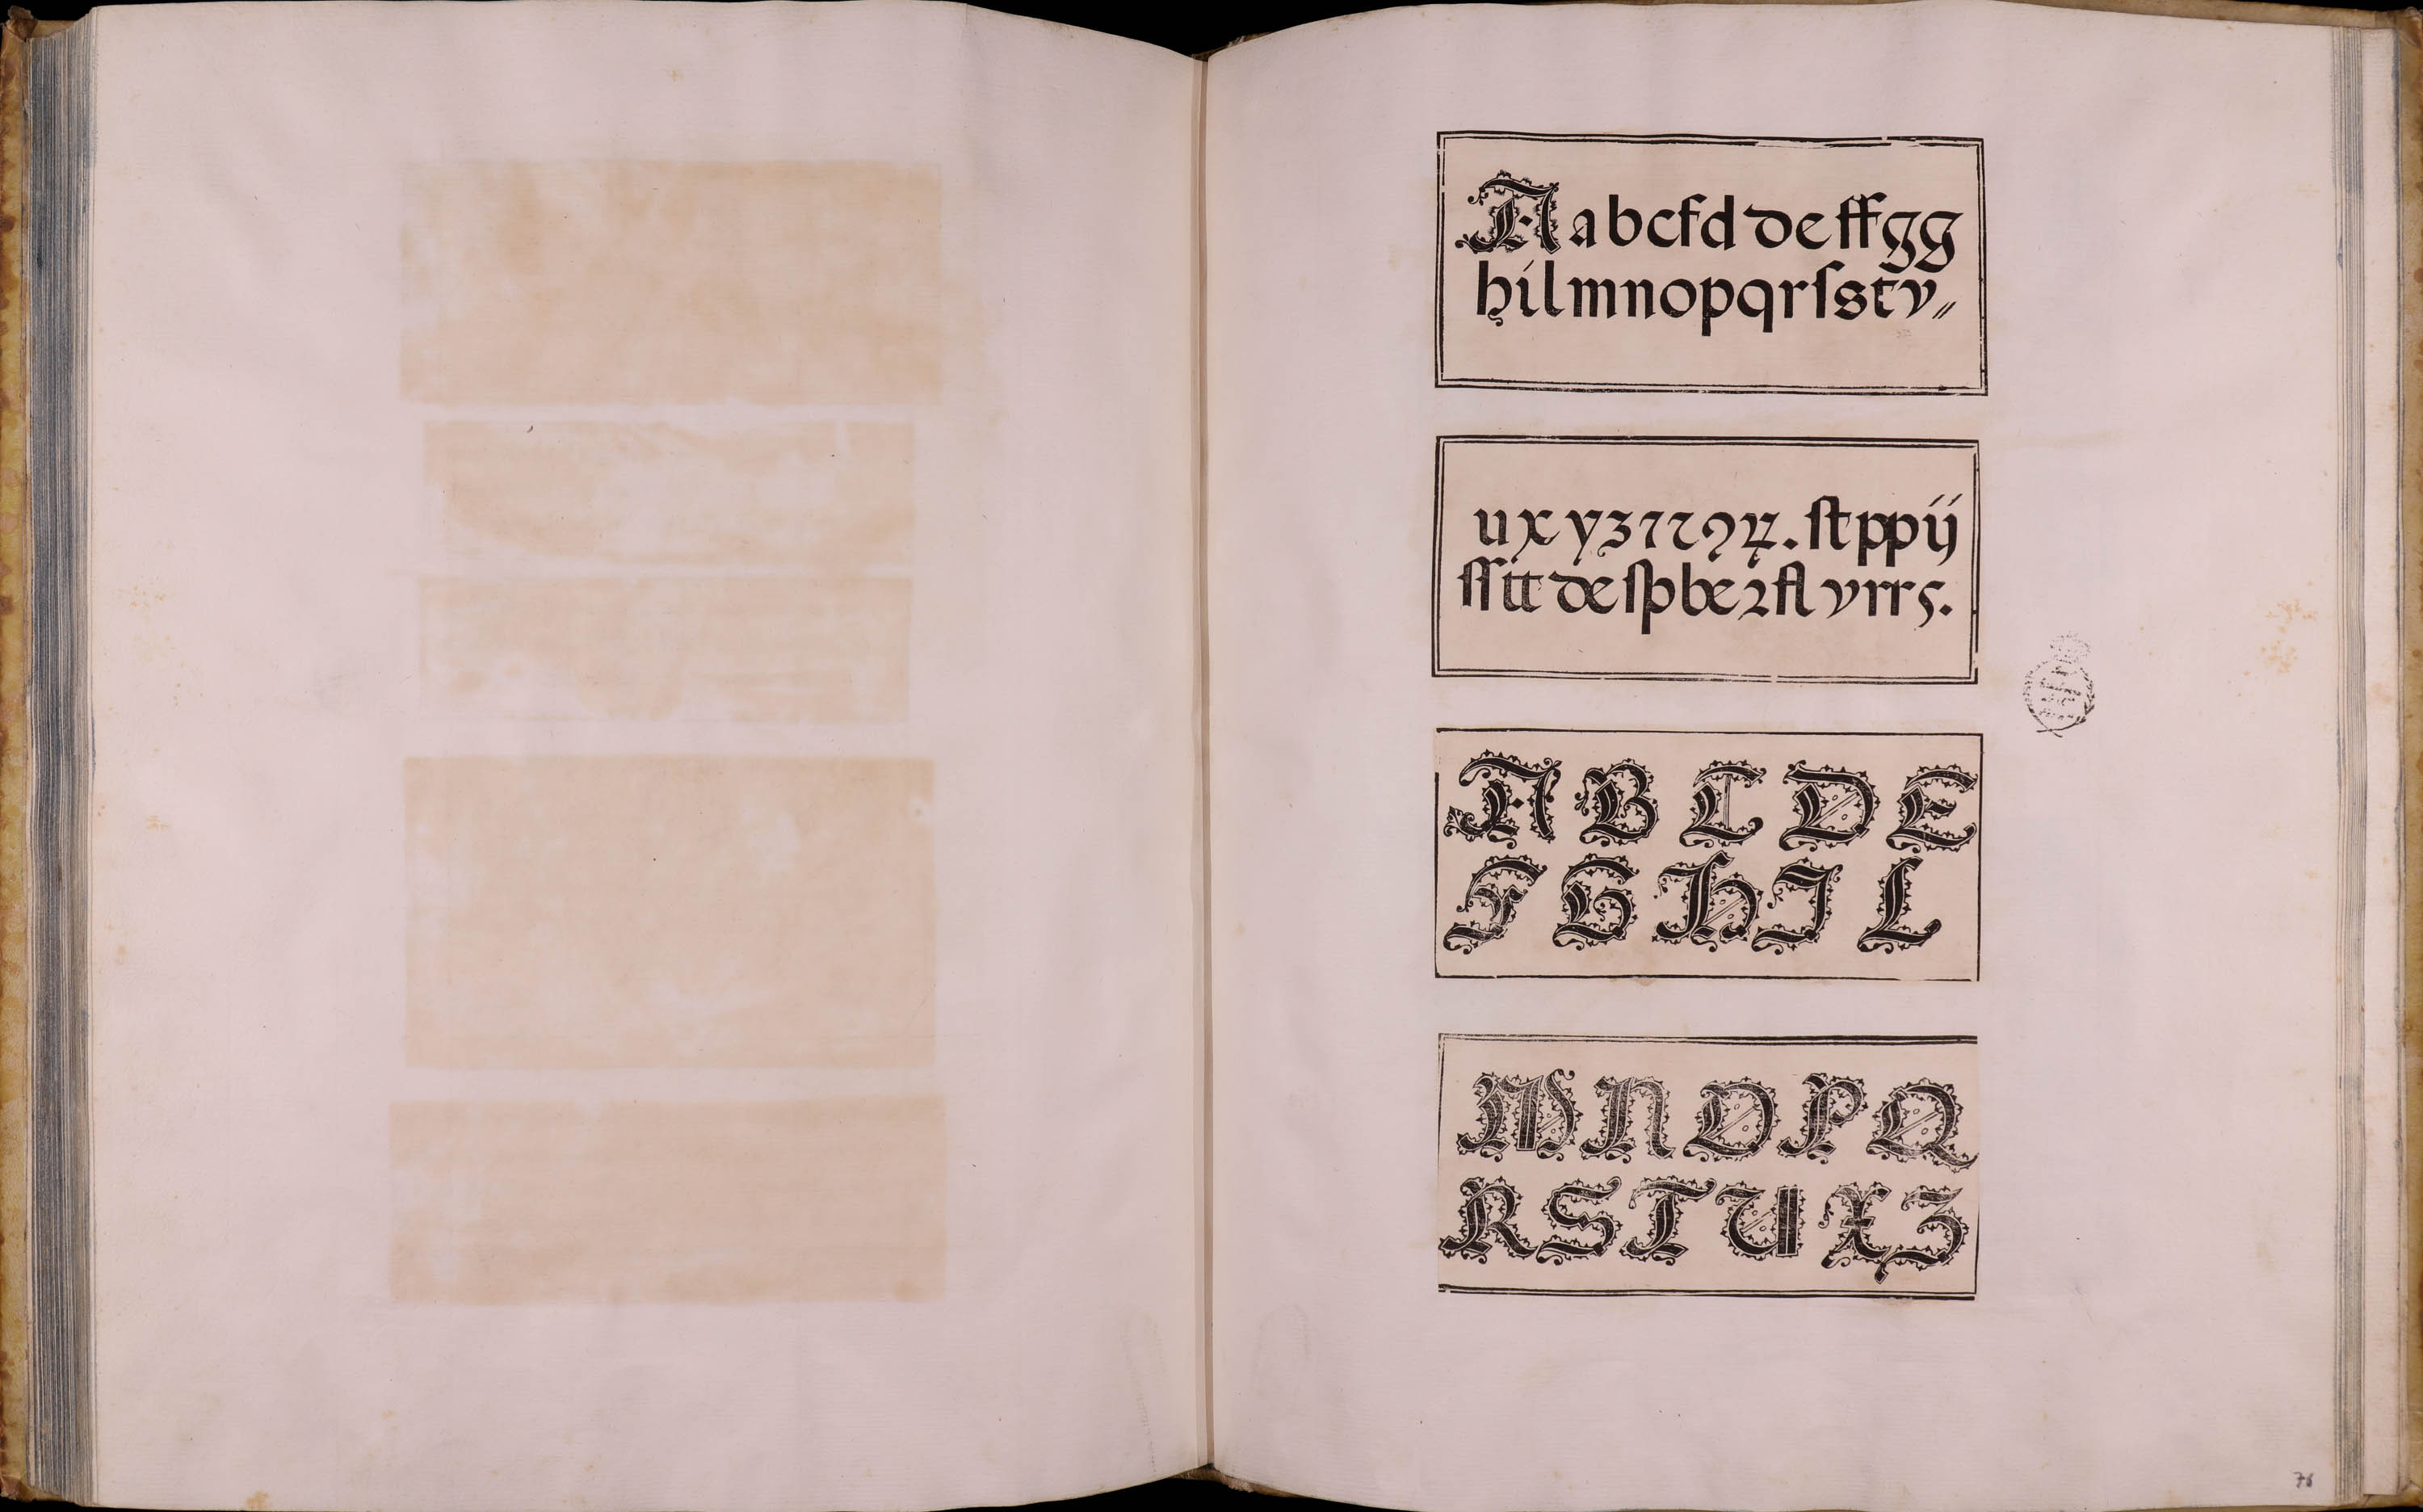 A a b c f d d e ff g g
h i l m n o p q r ſ s t v
u x y z 7 ꝛ 9 ꝝ. ſt pp ij
ſſ tt de ſp be 2 fl v rr s.
A B C D E
F G H I L
M N O P Q
R S T U X Z
76